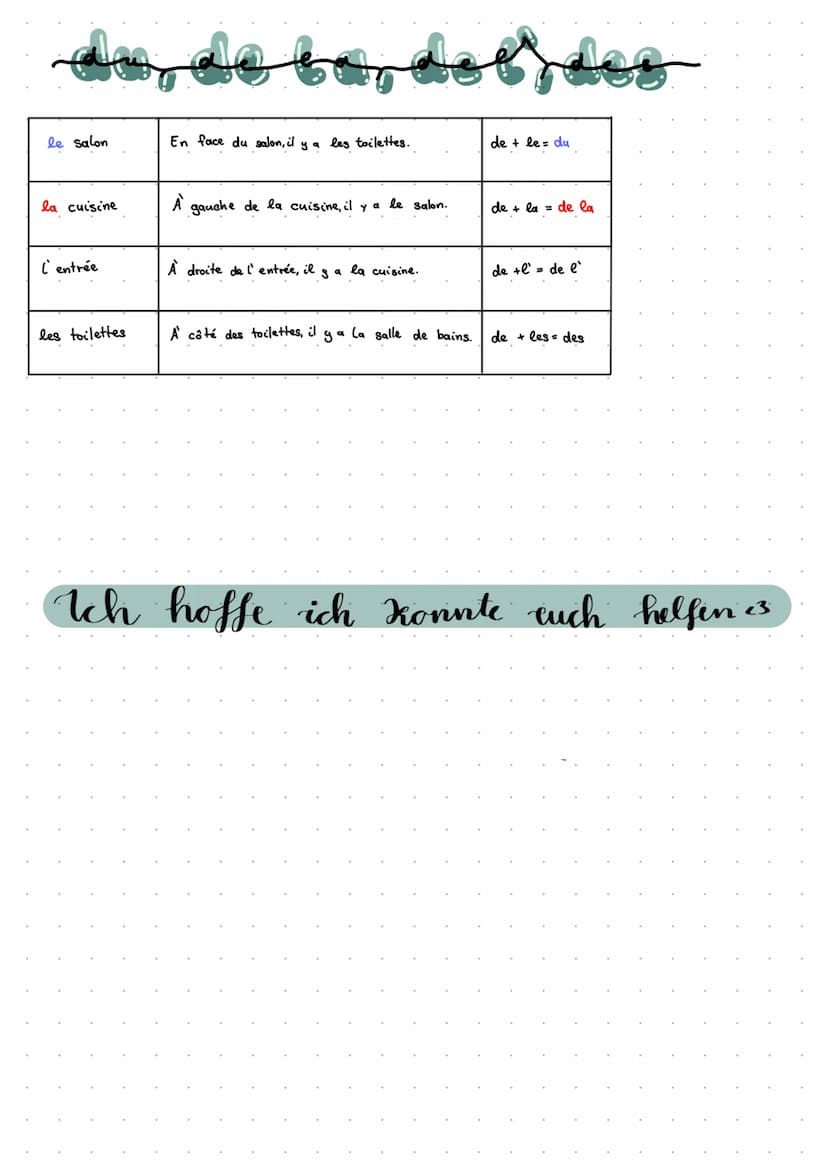 du, de la, de l', des
le salon
En face du salon, il y a les toilettes.
de + le = du
la cuisine
À gauche de la cuisine, il y a le salon.
de + la = de la
l'entrée
À droite de l'entrée, il y a la cuisine.
de + l' = de l'
les toilettes
À côté des toilettes, il y a la salle de bains.
de + les = des
Ich hoffe ich konnte euch helfen <3